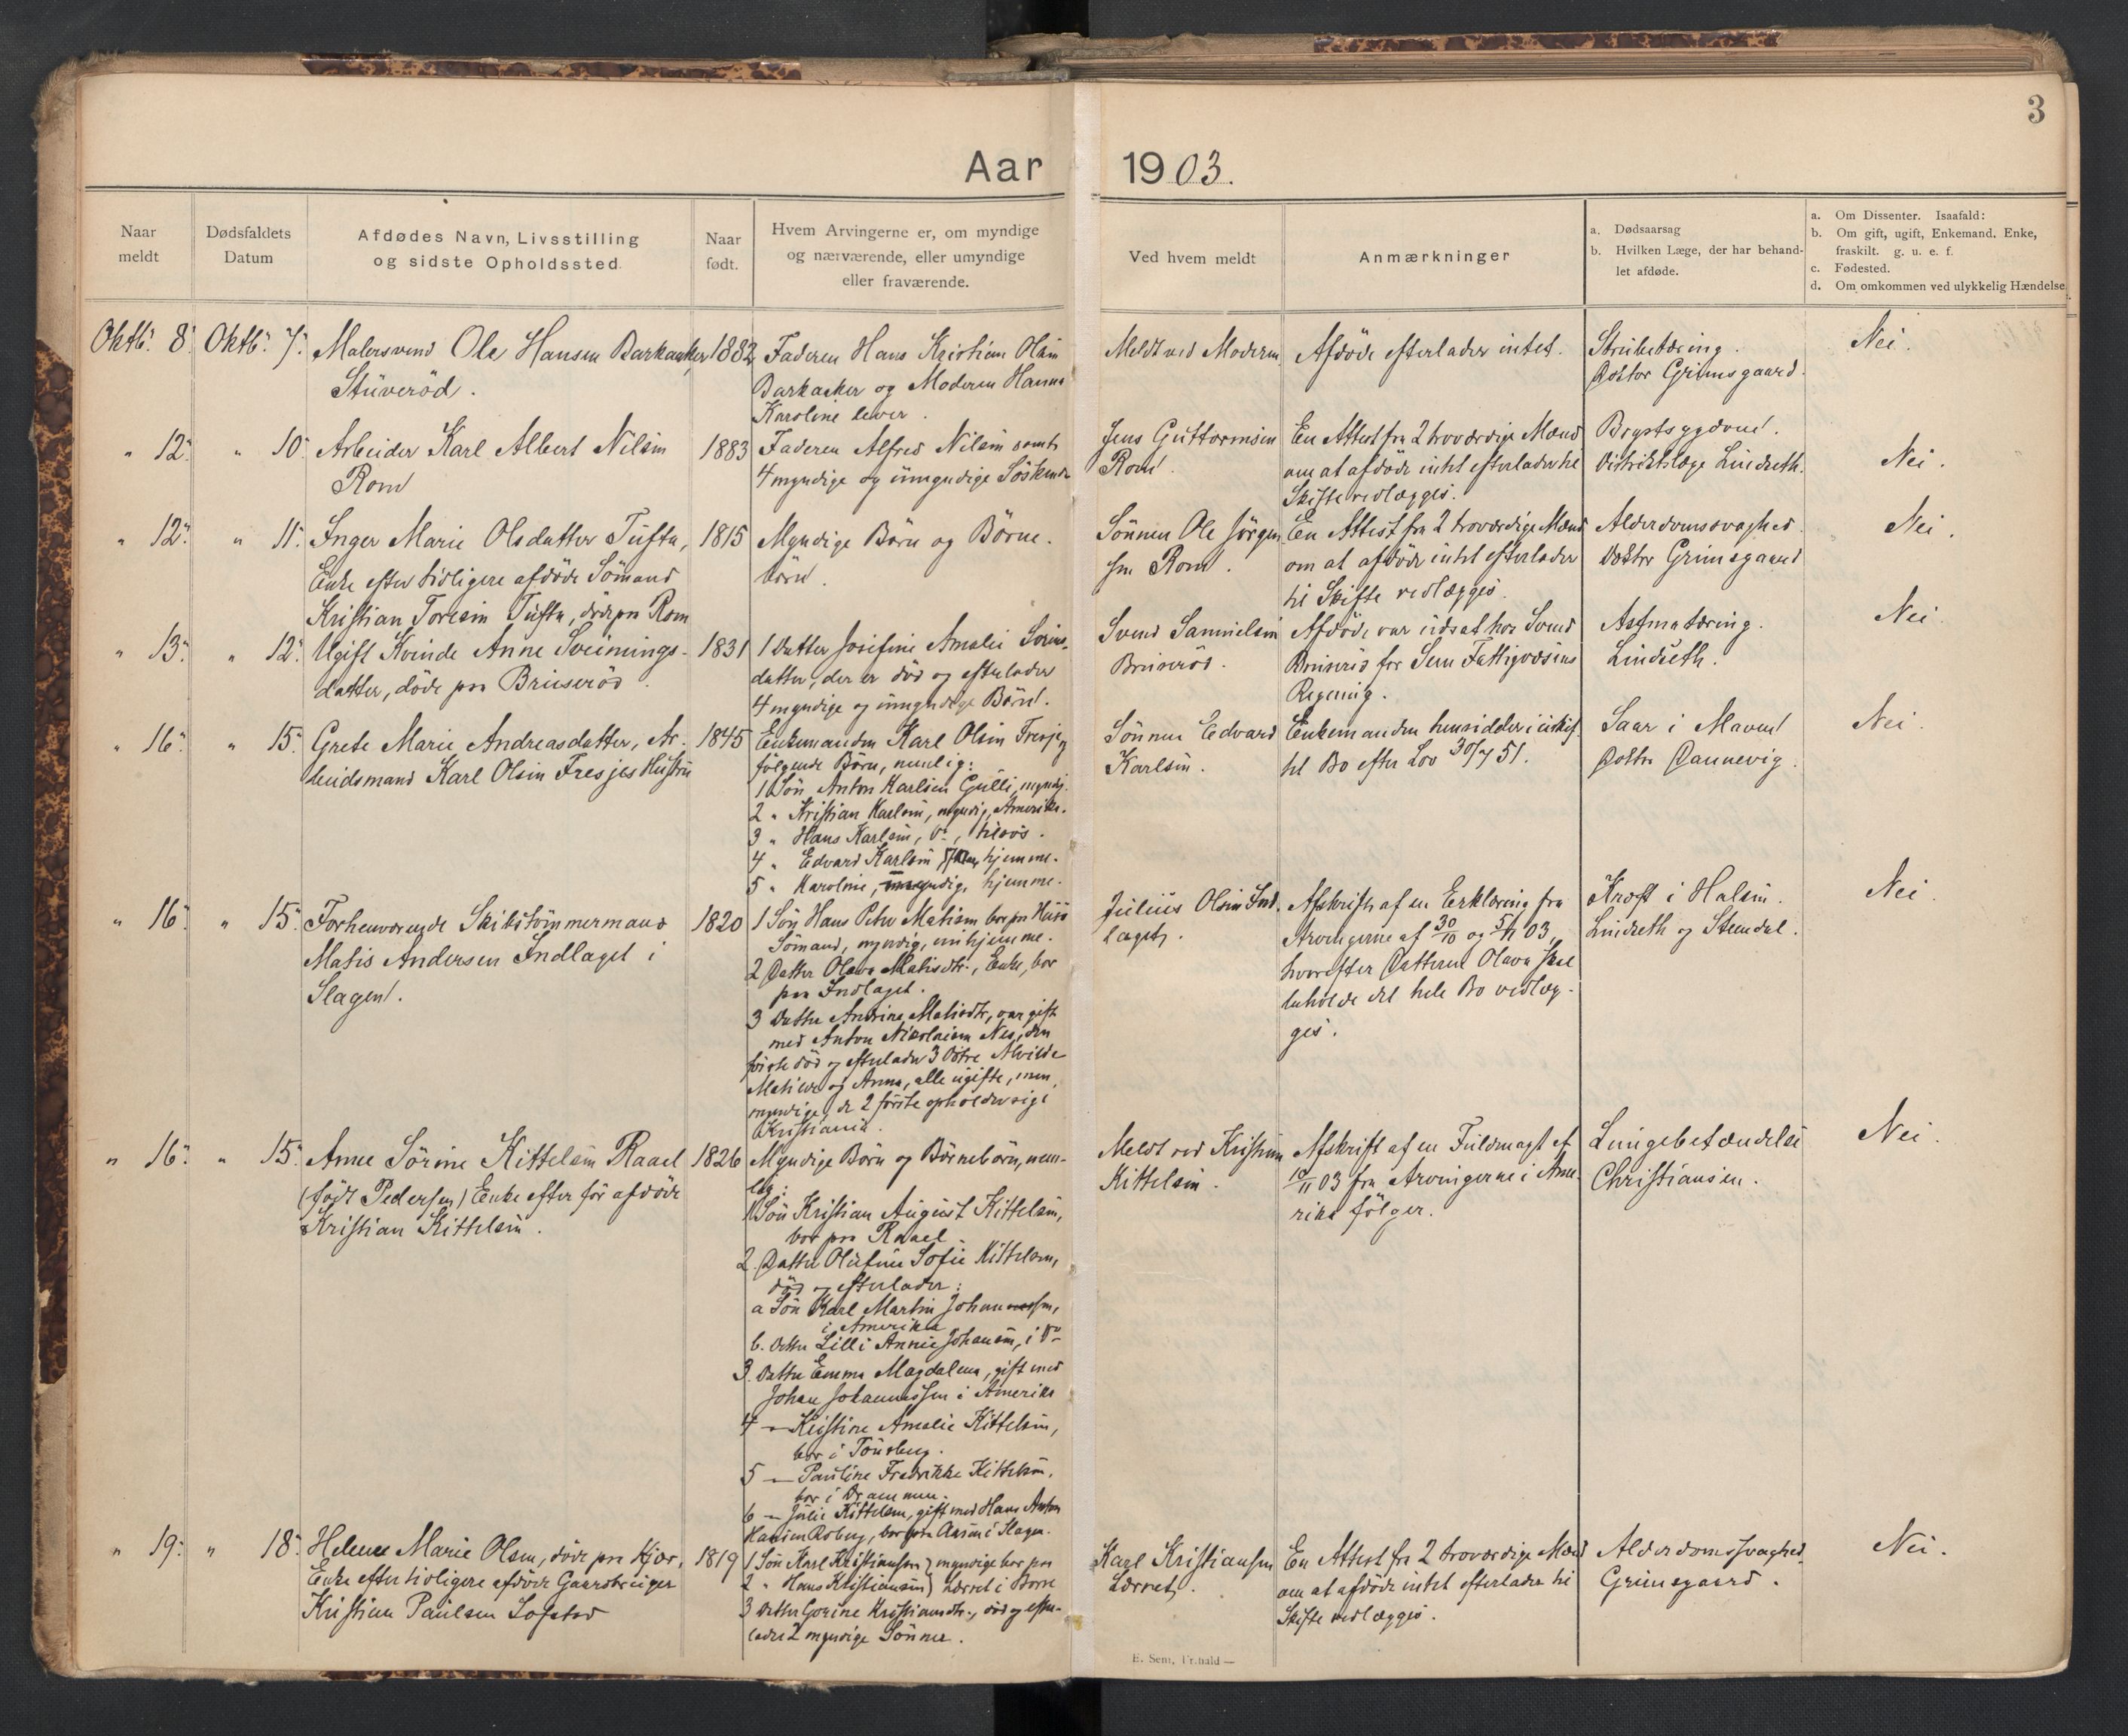 3
Aar 1903.
Naar meldt
Dødsfaldets Datum
Afdødes Navn, Livsstilling
og sidste Opholdssted.
Naar født.
Hvem Arvingerne er, om myndige
og nærværende, eller umyndige
eller fraværende.
Ved hvem meldt
Anmærkninger
a. Dødsaarsag
b. Hvilken Læge, der har behand-
let afdøde.
a. Om Dissenter. Isaafald:
b. Om gift, ugift, Enkemand. Enke,
fraskilt. g. u. e. f.
c. Fødested.
d. Om omkommen ved ulykkelig Hændelse
Oktb. 8. Oktb. 7. Malersvend Ole Hansen Barkaaker, 1882
Stüverød.
Faderen Hans Kristian Olsen
Barkaaker og Moderen Hanna
Karoline lever.
Meldt ved Moderen
Afdøde efterlader intet.
Strübetæring.
Doktor Grimsgaard.
Nei.
" 12. " 10. Arbeider Karl Albert Nilsen 1883
Rom
Faderen Alfred Nilsen samt
4 myndige og ümyndige Søskende
Jens Guttormsen
Rom.
En Attest fra 2 troværdige Mænd
om at afdøde intet efterlader til
Skifte vedlægges.
Brystsygdom.
Distriktslæge Lindseth.
Nei.
" 12. " 11. Inger Marie Olsdatter Tüfte, 1815
Enke efter tidligere afdøde Sømand
Kristian Toresen Tüfte, døde paa Rom
Myndige Børn og Børne-
børn.
Sønnen Ole Jørgen-
sen Rom.
En Attest fra 2 troværdige Mænd
om at afdøde intet efterlader
til Skifte vedlægges.
Alderdomssvaghed.
Doktor Grimsgaard
Nei.
" 13. " 12. Ugift Kvinde Anne Sveinings- 1831
datter, døde paa Brüserød.
1 Datter Josefine Amalie
datter, der er død og efterlader
4 myndige og ümyndige Børn.
Svend Samüelsen
Brüserød.
Afdøde var üdsat hos Svend
Brüserød for Sem Fattigvæsens
Regning.
Astmatæring.
Lindseth.
Nei.
" 16. " 15. Grete Marie Andreasdatter, Ar- 1845
beidsmand Karl Olsen Fresjes Hüstrü
Enkemanden Karl Olsen Fresje og
følgende Børn, nemlig:
1 Søn, Anton Karlsen Gülli, myndig.
2 " Kristian Karlsen, myndig, Amerika.
3 " Hans Karlsen, do,
4 " Edvard Karlsen, hjemme.
5 " Karoline, hjemme.
Sønnen Edvard
Karlsen.
Enkemanden hensidder i üskif-
tet Bo efter Lov 30/7 51.
Saar i Maven
Doktor Dannevig.
Nei.
" 16. " 15. Forhenværende Skibstømmermand 1820
Matis Andersen Indlaget i
Slagen.
1 Søn Hans Peter Matisen bor paa Hüsø
Sømand, myndig, hjemme.
2 Datter Olava Matisdtr., Enke, bor
paa Indlaget.
3 Datter Andrine Matisdtr, var gift
med Anton Nicolaisen Nes, den
første død og efterlader 3 Døtre Alvilde
Matilde og Anna, alle ügifte, men
myndige, de 2 første opholder sig i
Kristiania.
Jülius Olsen Ind-
laget.
Afskrift af en Erklæring fra
Arvingerne af 30/10 og 5/11 03,
hvorefter Datteren Olava skal
beholde det hele Bo vedlæg-
ges.
Kræft i Halsen.
Lindseth og Stendal.
Nei.
" 16. " 15. Anne Sørine Kittelsen Raael 1826
(født Pedersen) Enke efter før afdøde
Kristian Kittelsen.
Myndige Børn og Børnebørn, nem-
lig:
1 Søn Kristian Aügüst Kittelsen,
bor paa Raael
2. Datter Olüfine Sofie Kittelsen,
død og efterlader:
a Søn Karl Martin Johannessen,
i Amerika
b. Datter Lilli Annie Johansen, i do
3. Datter Emma Magdalena, gift med
Johan Johannessen i Amerika
4 — Kristine Amalie Kittelsen,
bor i Tønsberg.
5 — Pauline Fredrikke Kittelsen,
bor i Drammen.
6 — Jülie Kittelsen, gift med Hans Anton
Hansen Roberg, bor paa Aasen i Slagen.
Meldt ved Kristian
Kittelsen.
Afskrift af en Füldmagt af
10/11 03 fra Arvingerne i Ame-
rika følger.
Lüngebetændelse
Christiansen.
Nei.
" 19. " 18. Helene Marie Olsen, døde paa Kjær, 1819
Enke efter tidligere afdøde Gaardbrüger
Kristian Paülsen Lofstad
1 Søn Karl Kristiansen) myndige bor paa
2 " Hans Kristiansen) Lærret i Borre
3 Datter Gorine Kristiansdtr., død og efter-
lader 2 myndige Sønner.
Karl Kristiansen
Lærret.
En Attest fra 2 troværdige Mænd
om at afdøde intet efterlader til
Skifte vedlægges.
Alderdomssvaghed.
Grimsgaard.
Nei.
E. Sem, Fr.hald —